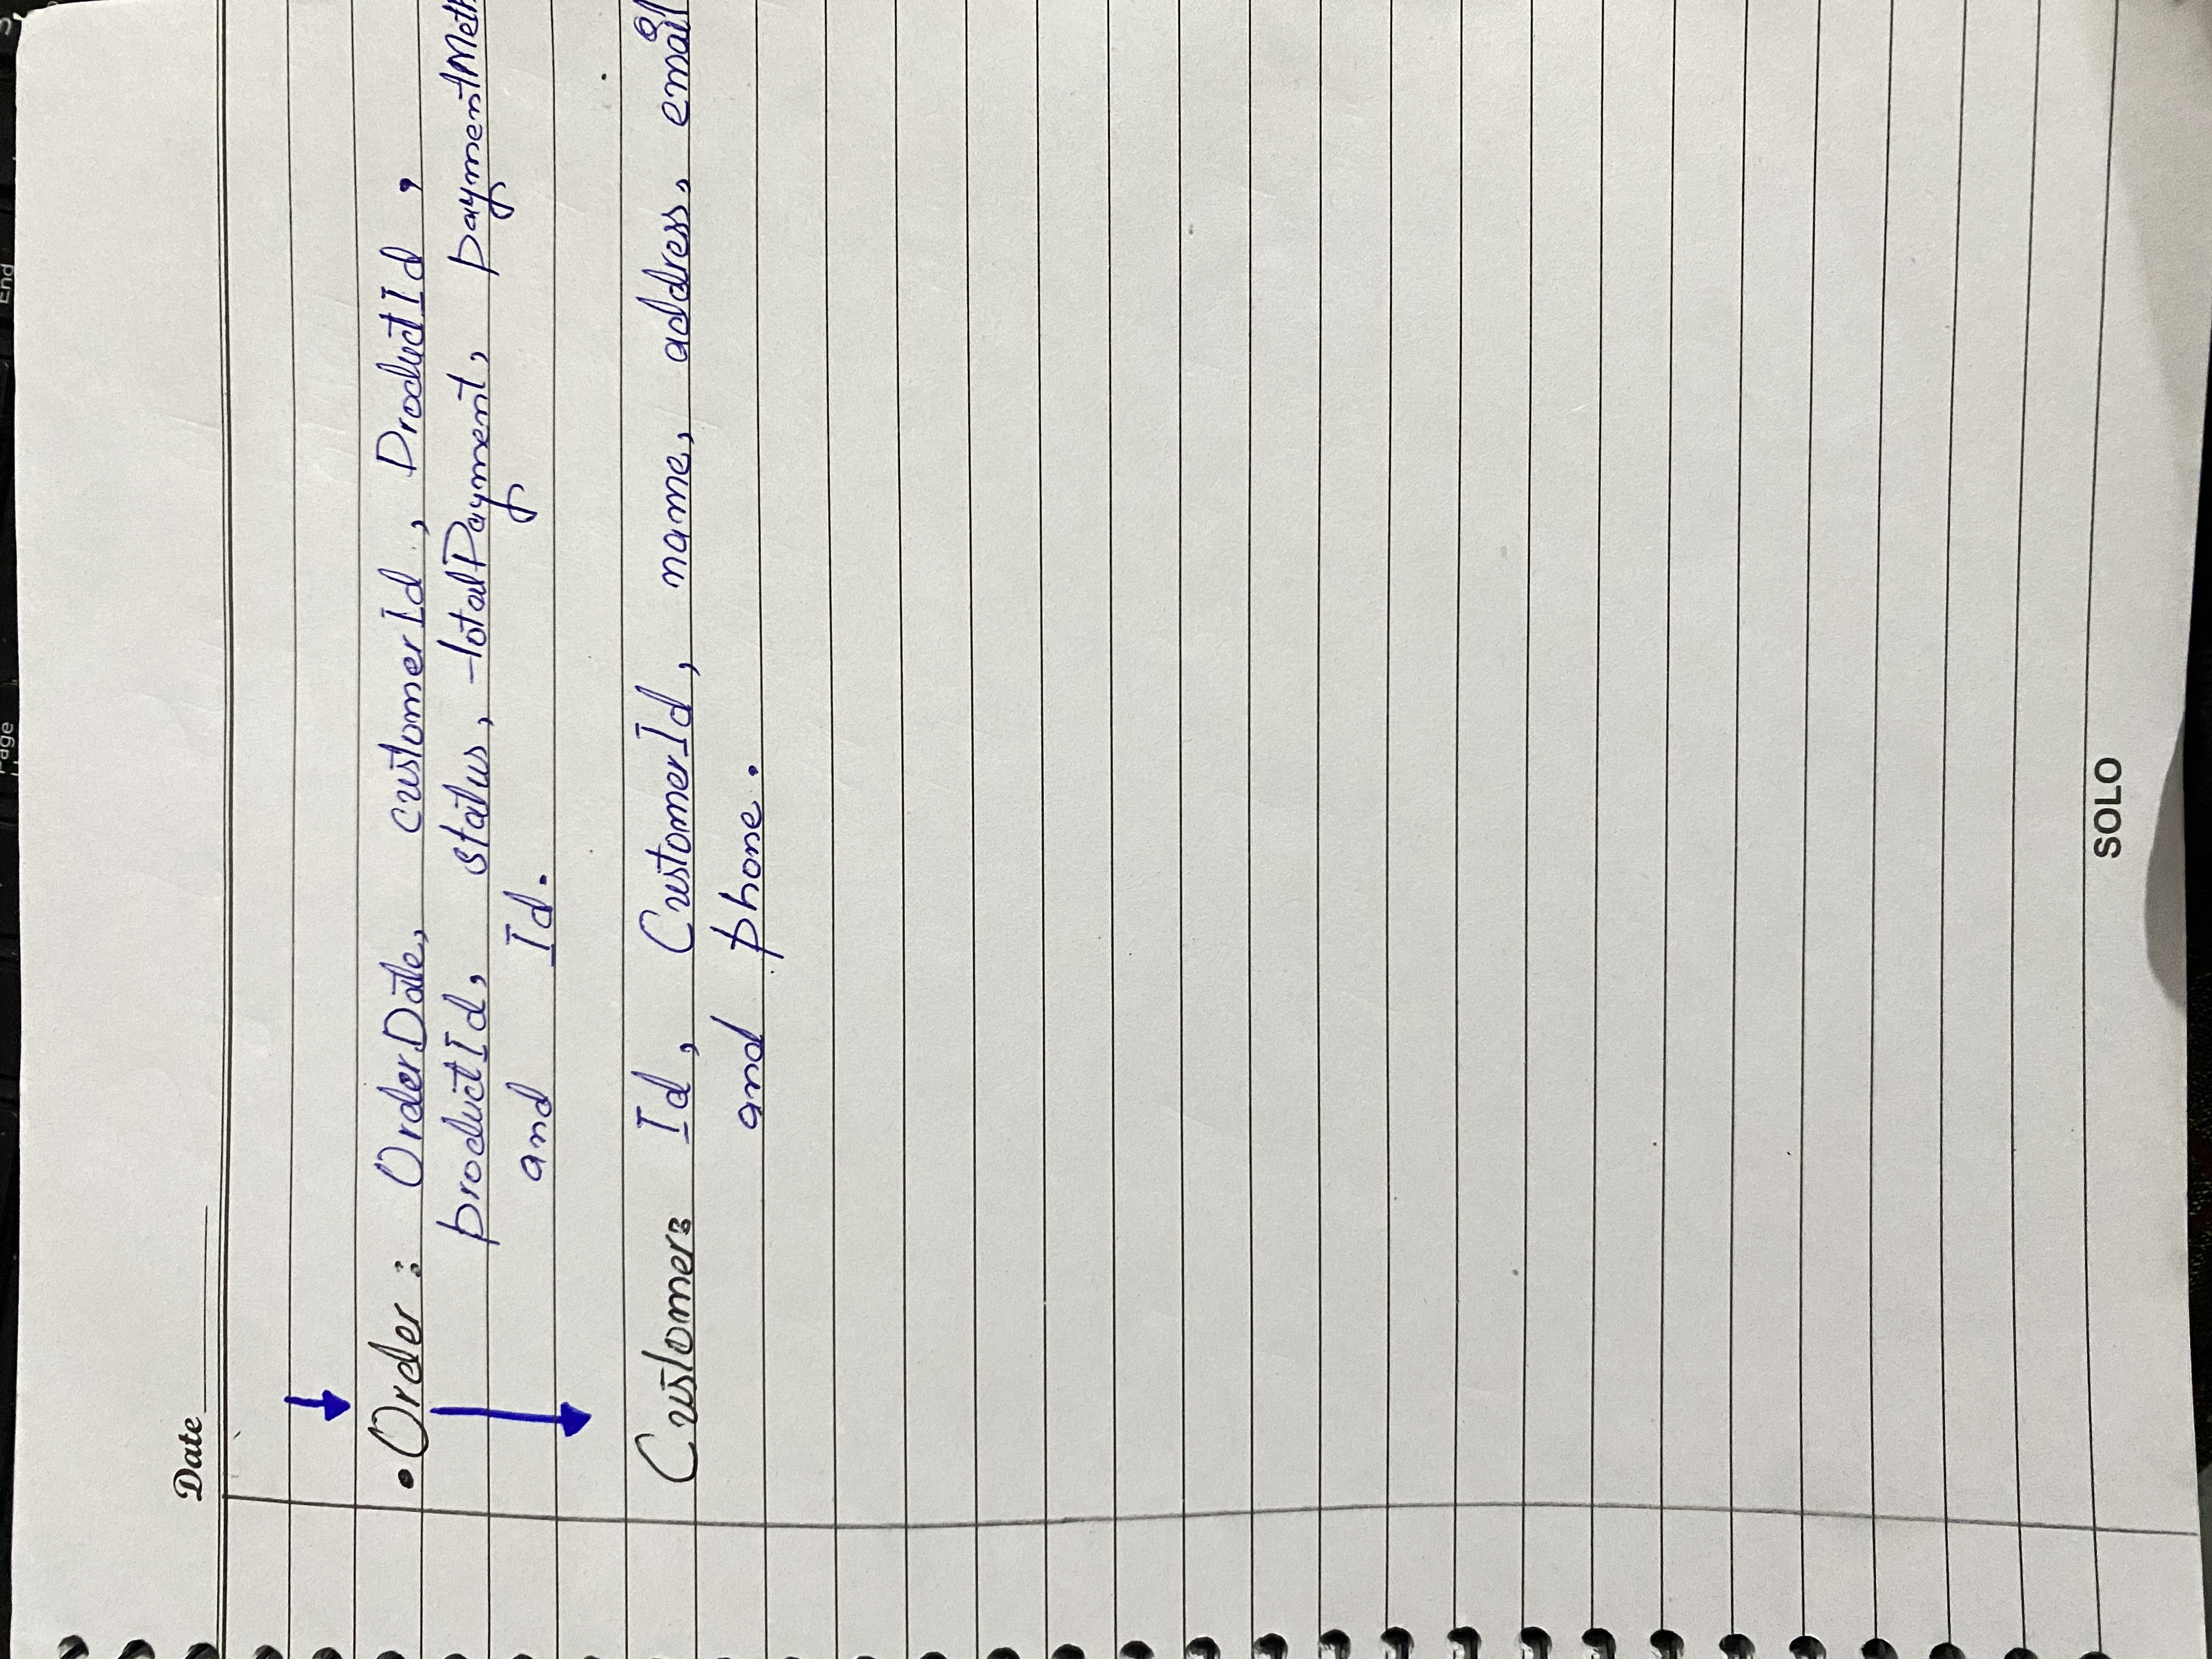 Page
End
Date
• Order : OrderDate, customerId , ProductId ,
productId, status, totalPayment, paymentMeth
and Id.
Customer: Id, CustomerId, name, address, email
and phone.
SOLO